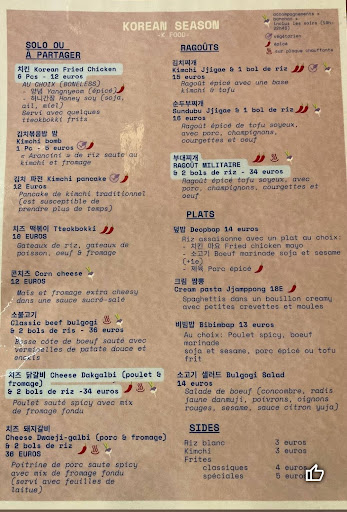 KOREAN SEASON
-K_FOOD-
accompagnements +
inclus les soirs
végétarien
épicé
sur plaque chauffante
SOLO OU
À PARTAGER
치킨 Korean Fried Chicken
6 Pcs - 12 euros
AU CHOIX (BONELESS)
양념 Yangnyeom (épicé)
허니간장 Honey soy (soja, ail, miel)
Servi avec quelques
tteokbokki frits
김치볶음밥 밤
Kimchi bomb
1 Pc - 5 euros
« Arancini » de riz sauté au
kimchi et fromage
김치 파전 Kimchi pancake
12 Euros
Pancake de kimchi traditionnel
(est susceptible de
prendre plus de temps)
치즈 떡볶이 Tteokbokki
10 EUROS
Gateaux de riz, gateaux de
poisson, oeuf & fromage
콘치즈 Corn cheese
12 EUROS
Maïs et fromage extra cheesy
dans une sauce sucré-salé
소불고기
Classic beef bulgogi
& 2 bols de riz - 36 euros
Basse côte de boeuf sauté avec
vermicelles de patate douce et
enoki
치즈 닭갈비 Cheese Dakgalbi (poulet &
fromage)
& 2 bols de riz -34 euros
Poulet sauté spicy avec mix
de fromage fondu
치즈 돼지갈비
Cheese Dwaeji-galbi (porc & fromage)
& 2 bols de riz
36 EUROS
Poitrine de porc sauté spicy
avec mix de fromage fondu
(servi avec feuilles de
laitue)
RAGOÛTS
김치찌개
Kimchi Jjigae & 1 bol de riz
15 euros
Ragoût épicé avec une base
kimchi & tofu
순두부찌개
Sundubu Jjigae & 1 bol de riz
16 euros
Ragoût épicé de tofu soyeux,
avec porc, champignons,
courgettes et oeuf
부대찌개
RAGOÛT MILITAIRE
& 2 bols de riz - 34 euros
Ragoût épicé tofu soyeux, avec
porc, champignons, courgettes et
oeuf
PLATS
덮밥 Deopbap 14 euros
Riz assaisonné avec un plat au choix:
- 치킨 마요 Fried chicken mayo
- 소고기 Boeuf marinade soja et sesame
(+1e)
- 제육 Porc épicé
크림 짬뽕
Cream pasta Jjamppong 18E
Spaghettis dans un bouillon creamy
avec petites crevettes et moules
비빔밥 Bibimbap 13 euros
Au choix: Poulet spicy, boeuf
marinade
soja et sesame, porc épicé ou tofu
frit
소고기 샐러드 Bulgogi Salad
14 euros
Salade de boeuf (concombre, radis
jaune danmuji, poivrons, oignons
rouges, sesame, sauce citron yuja)
SIDES
Riz blanc 3 euros
Kimchi 3 euros
Frites
classiques 4 euros
spéciales 5 euros